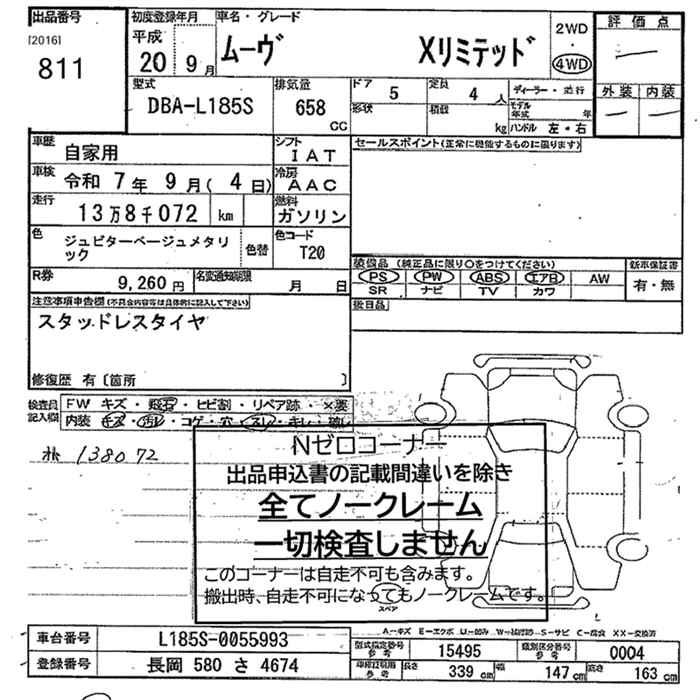 出品番号 初度登録年月 車名・グレード 2WD 評価点
[2016] 平成 ムーヴ Xリミテッド 4WD
811 20 9月
型式 排気量 ドア 5 定員 4人 ディーラー・並行 外装 内装
DBA-L185S 658 CC 形状 積載 kg モデル年式 年 ハンドル 左・右
車歴 自家用 シフト IAT セールスポイント(正常に機能するものに限ります)
車検 令和 7年 9月( 4日) 冷房 AAC
走行 13万8千072 km 燃料 ガソリン
色 ジュピターベージュメタリック 色替 色コード T20
装備品 (純正品に限り○をつけてください) 新車保証書
R券 9,260円 名変通知期限 月 日 PS PW ABS エアB AW 有・無
SR ナビ TV カワ
注意事項申告欄(不具合内容等は具体的に記入して下さい) 後日品
スタッドレスタイヤ
修復歴 有〔箇所 〕
検査員記入欄 FW キズ・飛石・ヒビ割・リペア跡・×要
内装 キズ・汚れ・コゲ・穴・スレ・キレ・破レ
138072
Nゼロコーナー
出品申込書の記載間違いを除き
全てノークレーム
一切検査しません
このコーナーは自走不可も含みます。
搬出時、自走不可になってもノークレームです。
スペア
A-キズ E-エクボ U-凹み W-補修跡 S-サビ C-腐食 XX-交換済
車台番号 L185S-0055993 型式指定番号 参考 15495 類別区分番号 参考 0004
登録番号 長岡 580 さ 4674 車検証積用 参考 長さ 339 cm 幅 147 cm 高さ 163 cm